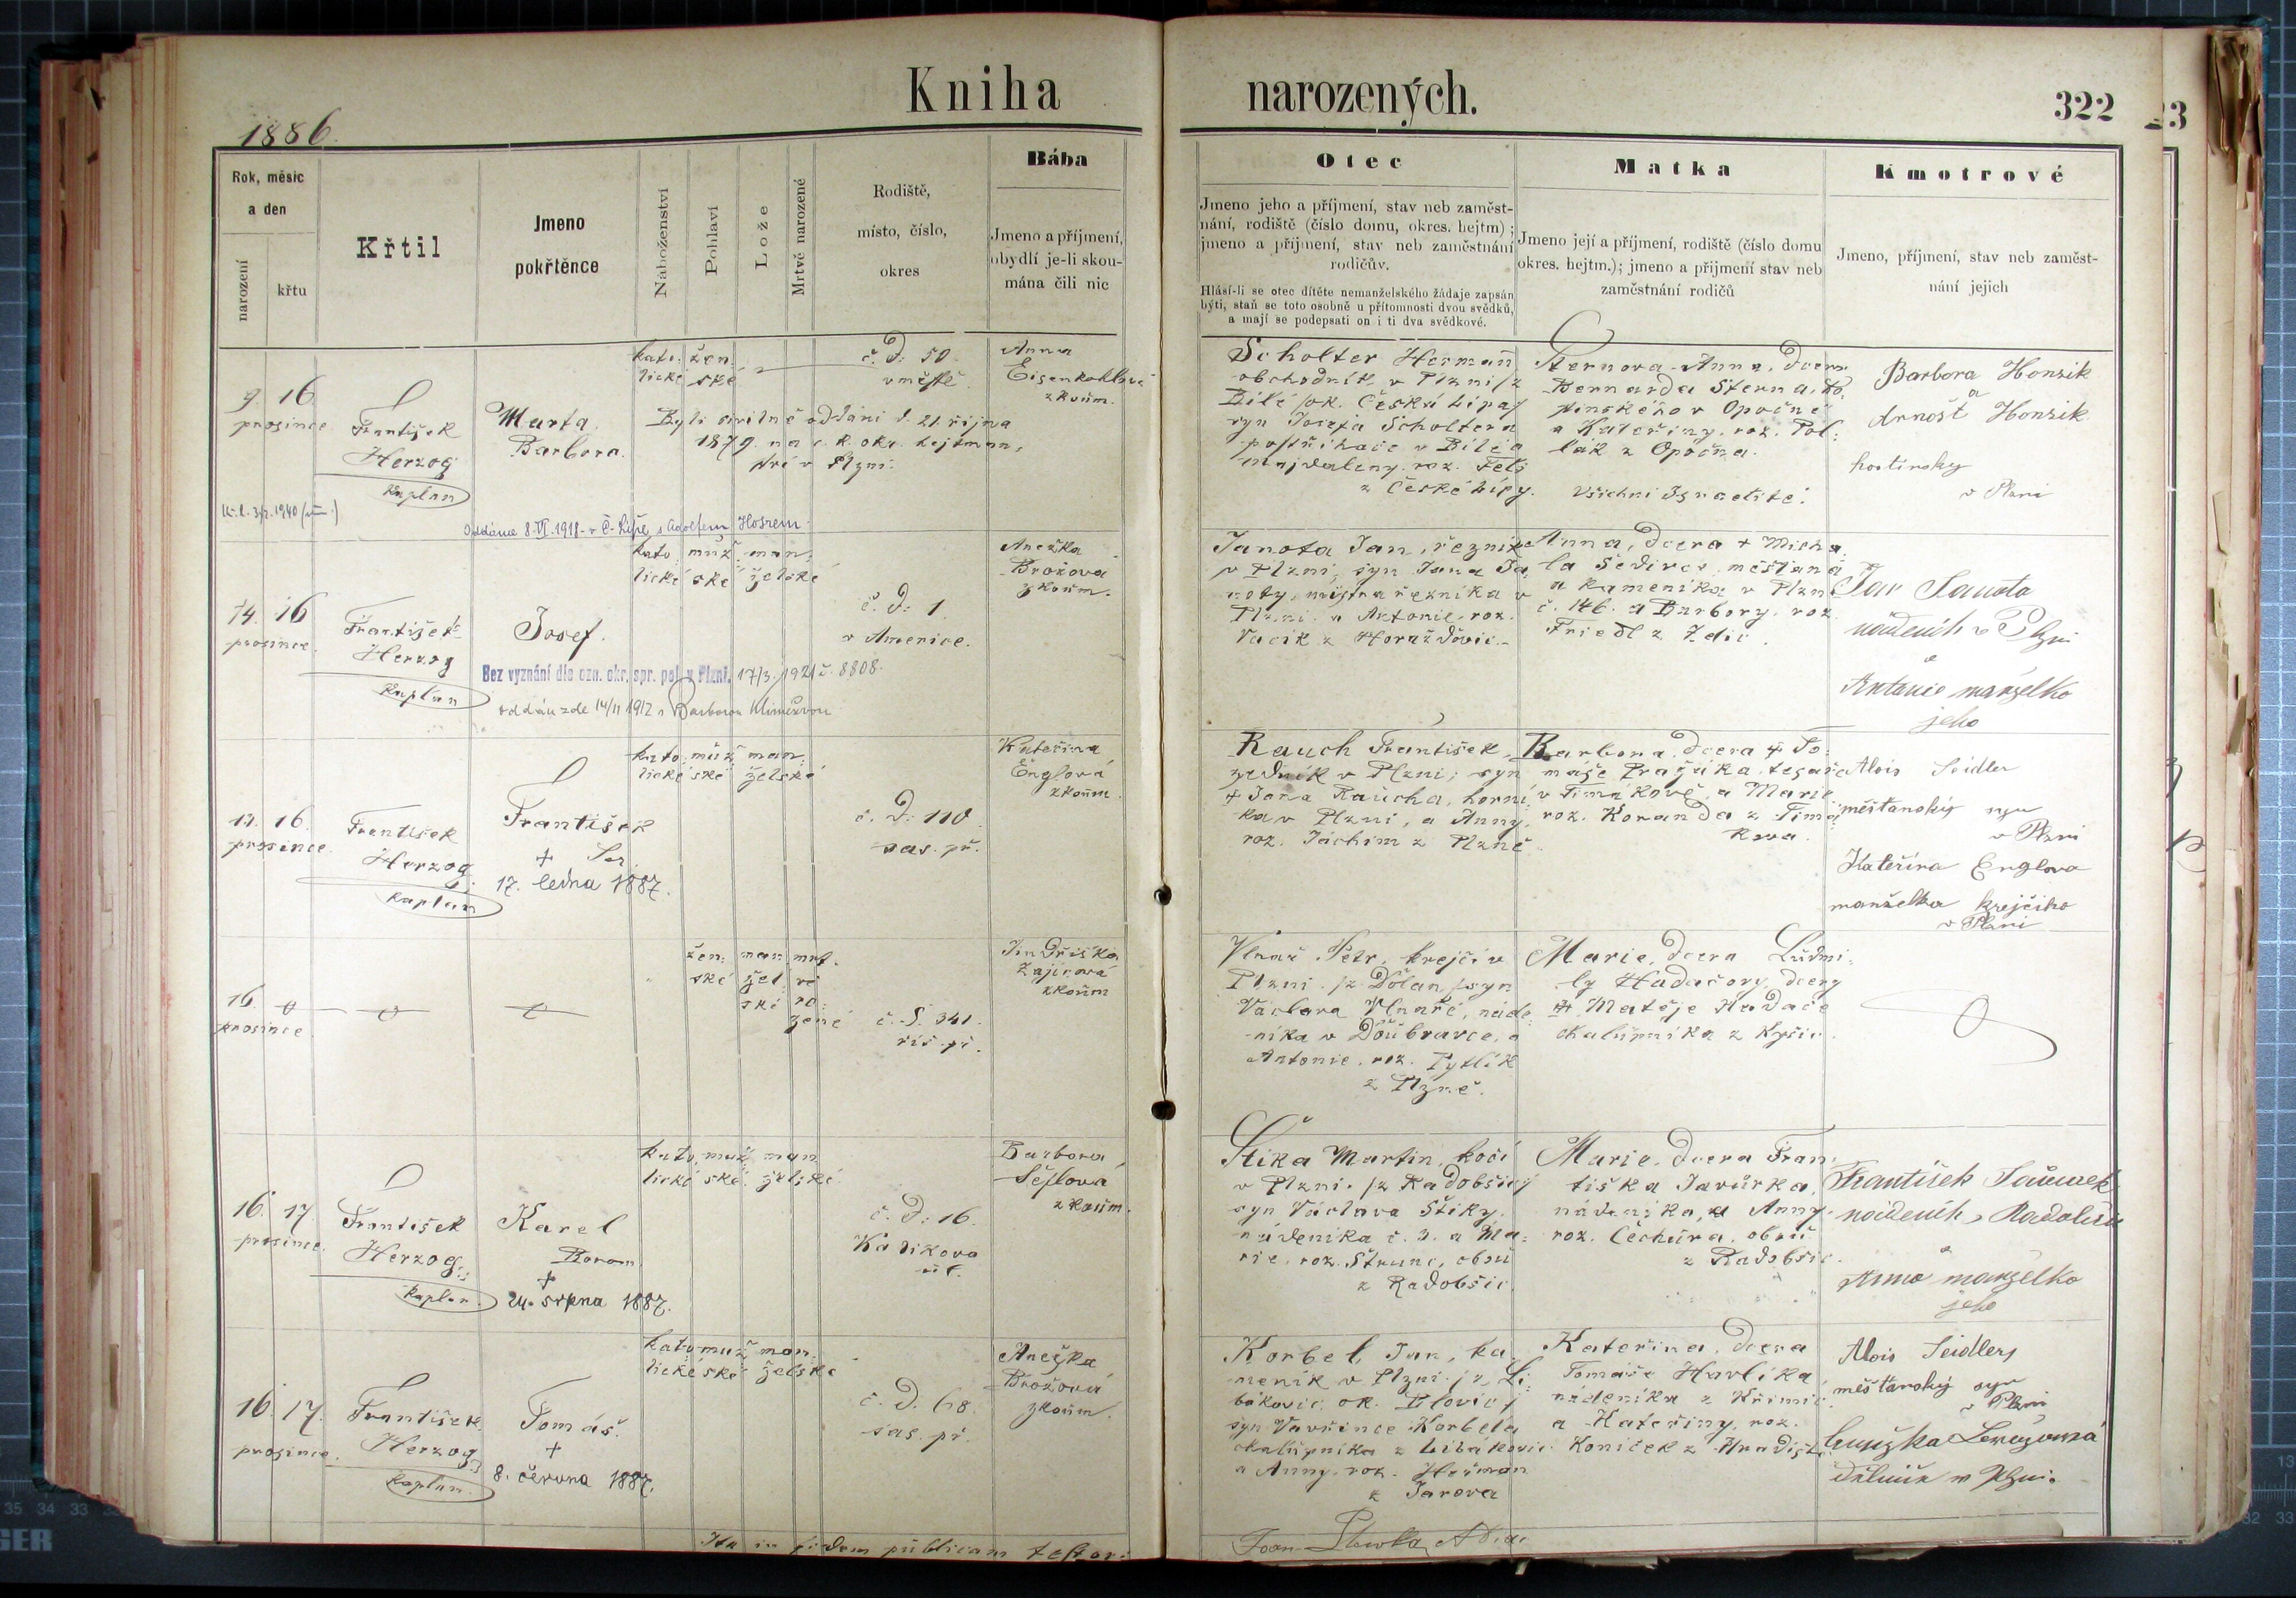 Kniha narozených.
322
23
1886.
Rok, měsíc
a den
narození
křtu
Křtil
Jmeno
pokřtěnce
Náboženství
Pohlaví
Lože
Mrtvě narozené
Rodiště,
místo, číslo,
okres
Bába
Jmeno a příjmení,
obydlí je-li skou-
mána čili nic
Otec
Jmeno jeho a příjmení, stav neb zaměst-
nání, rodiště (číslo domu, okres. hejtm) ;
jmeno a příjmení, stav neb zaměstnání
rodičův.
Hlásí-li se otec dítěte nemanželského žádaje zapsán
býti, staň se toto osobně u přítomnosti dvou svědků,
a mají se podepsati on i ti dva svědkové.
Matka
Jmeno její a příjmení, rodiště (číslo domu
okres. hejtm.); jmeno a příjmení stav neb
zaměstnání rodičů
Kmotrové
Jmeno, příjmení, stav neb zaměst-
nání jejich
9. 16
prosince
František
Herzog
kaplan
Marta
Barbora.
kato: žen:
lické ské
Byli civilně oddáni d. 21. října
1879 na c. k. okr. hejtman,
ství v Plzni.
č. d: 50
v městě
Anna
Eisenkohlová
zkoum.
Scholter Herman
obchodník v Plzni /z
Bílé /ok. Česká Lípa/
syn Josefa Scholtera
postřihače v Bílé a
Majdaleny roz. Fels
z České Lípy.
Sternova Anna, dcera
Bernarda Sterna, ho,
stinského v Opočně
a Kateřiny, roz. Pol:
lák z Opočna.
Všichni Israelité.
Barbora Honzik
a
Arnošt Honzik
hostinsky
v Plzni
Oddána 8.VI.1918 v Č. Lípě s Adolfem
14. 16
prosince.
František
Herzog
kaplan
Josef.
kato: muž: man:
lické ské želské
č. d: 1.
v Americe.
Anežka
Brožova
zkoum.
Janota Jan, řezník
v Plzni, syn Jana Ja,
noty, mistra řezníka v
Plzni a Antonie, roz.
Vacík z Horažďovic.
Anna, dcera + Micha,
la Šedivce, měšťana
a kameníka v Plzni
č. 146. a Barbory, roz.
Friedl z Zelic.
Jan Janota
nádeník v Plzni
a
Antonie manželka
jeho
Bez vyznání dle ozn. okr. spr. pol. v Plzni. 17/3. 1921 č. 8808.
oddán zde 14/11 1912 s Barborou
13. 16.
prosince.
František
Herzog.
kaplan
František
+ Ser.
17. ledna 1887.
kato: muž: man:
lické ské želské
č. d: 110
sas. př.
Kateřina
Englová
zkoum.
Rauch František,
zedník v Plzni, syn
+ Jana Raucha, horní:
ka v Plzni, a Anny,
roz. Jáchim z Plzně.
Barbora, dcera + To:
máše Pražáka, tesaře
v Timákově, a Marie
roz. Koranda z Timá
kova.
Alois Seidler
měšťanský syn
v Plzni
Kateřina Englova
manželka krejčího
v Plzni
16.
prosince
žen: man: mrt.
ské žel vě
ské na
zené
č. S. 341.
říš. př.
Jindřiška
Zajícová
zkoum
Vlnař Petr, krejčí v
Plzni /z Dolan, /syn
Václava Vlnaře, náde:
níka v Doubravce, a
Antonie, roz. Pytlík
z Plzně.
Marie, dcera Ludmi:
ly Hadačovy, dcery
+ Matěje Hadače
chalupníka z Kyšic.
16. 17.
prosince.
František
Herzog.
kaplan.
Karel
Borom.
+
24. srpna 1887.
kato, muž: man
lické ské želské
č. d: 16.
Kadíkova
ul.
Barbora
Šejlová
zkoum.
Štika Martin, kočí
v Plzni /z Radobčic/
syn Václava Štiky
nádeníka č. 3. a Ma:
rie, roz. Štrunc, obou
z Radobčic.
Marie, dcera Fran:
tiška Javůrka,
nádeníka, a Anny
roz. Čechura, obou
z Radobčic.
František
nádeník
a
Anna manželka
jeho
16. 17.
prosince.
František
Herzog
kaplan.
Tomáš.
+
8. června 1887.
kato: muž: man:
lické ské želské
č. d. 68
sas. př.
Anežka
Brožová
zkoum.
Korbel Jan, ka
meník v Plzni /z Li:
bákovic ok. Blovic/
syn Vavřince Korbela
chalupníka z Libákovic
a Anny, roz. Heřman
z Jarova
Kateřina, dcera
Tomáše Havlíka
nádeníka z Křimic
a Kateřiny, roz.
Koníček z Hradiště
Alois Seidler
měšťanský syn
v Plzni
v Plzni.
Ita in fidem publicam testor:
Joan